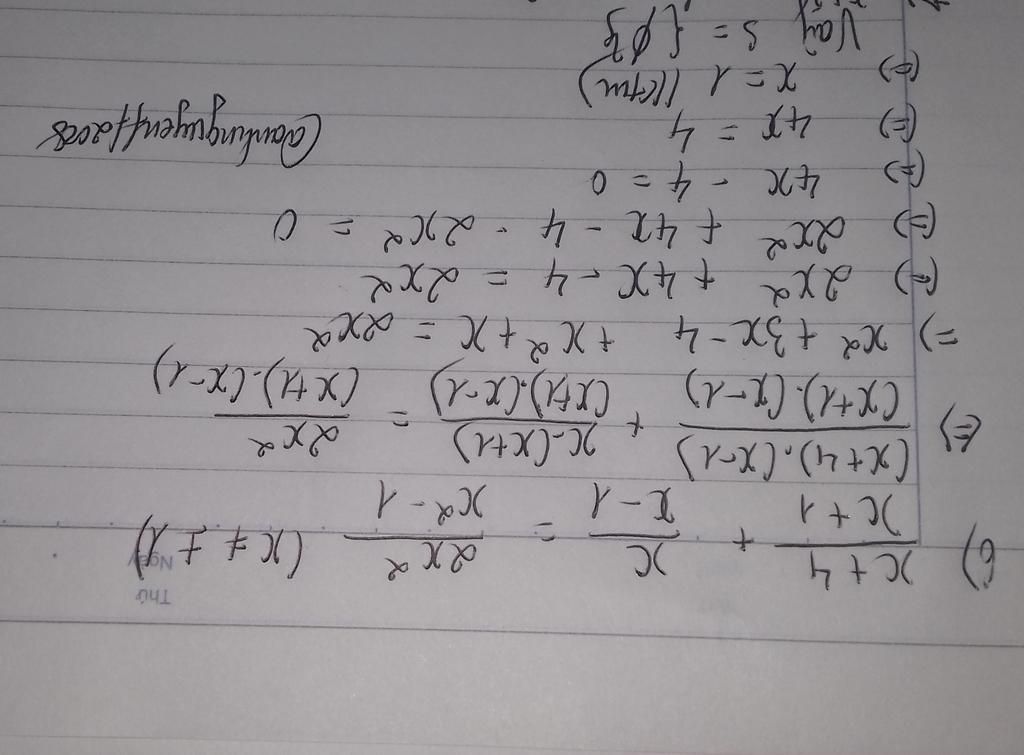 Thứ
Ngày
6) x + 4 / x + 1 + x / x - 1 = 2x² / x² - 1 (x ≠ ± 1)
(=) (x + 4).(x - 1) / (x + 1).(x - 1) + x.(x + 1) / (x + 1).(x - 1) = 2x² / (x + 1).(x - 1)
=) x² + 3x - 4 + x² + x = 2x²
(=) 2x² + 4x - 4 = 2x²
(=) 2x² + 4x - 4 - 2x² = 0
(=) 4x - 4 = 0
(=) 4x = 4
(=) x = 1 (ktm)
Vậy S = {ø}